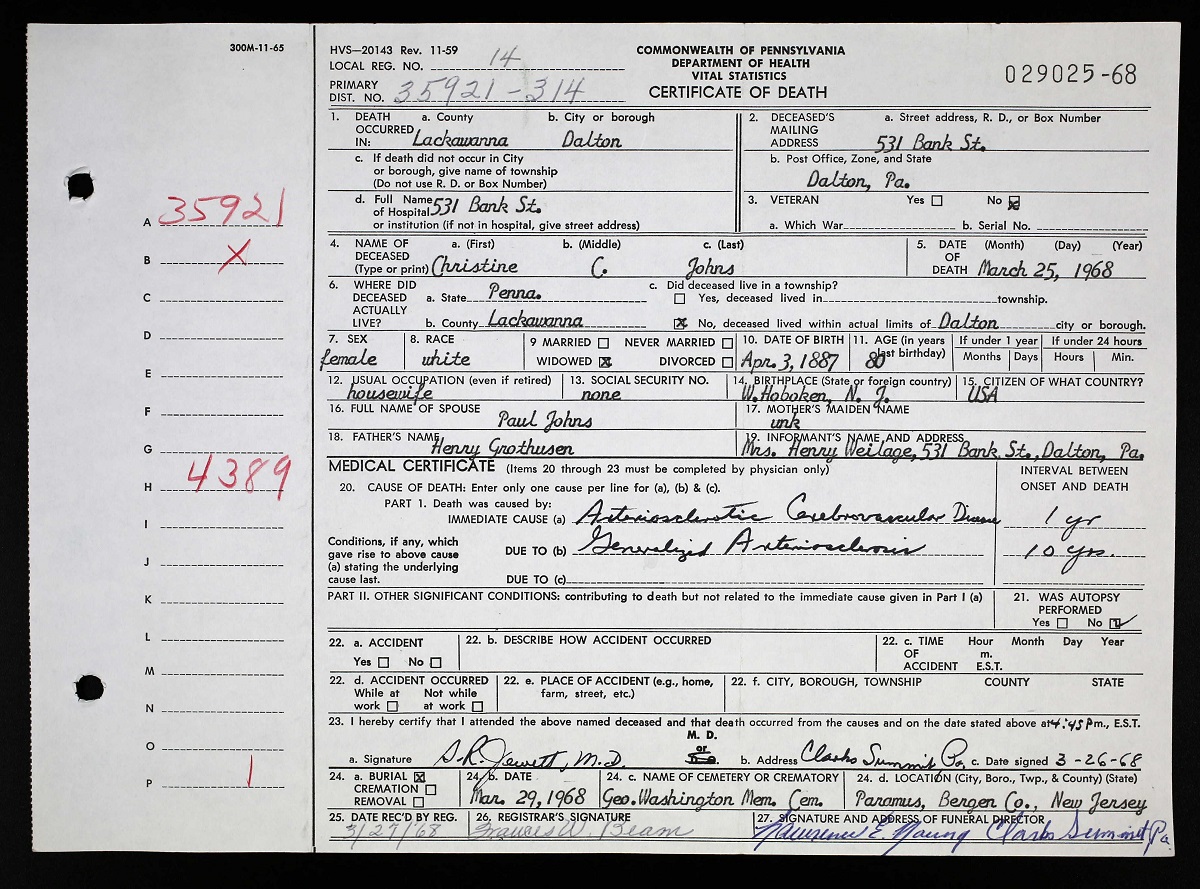 300M-11-65
HVS—20143 Rev. 11-59
LOCAL REG. NO. 14
PRIMARY
DIST. NO. 35921-314
COMMONWEALTH OF PENNSYLVANIA
DEPARTMENT OF HEALTH
VITAL STATISTICS
CERTIFICATE OF DEATH
029025-68
A 35921
B X
C
D
E
F
G
H 4389
I
J
K
L
M
N
O
P 1
1. DEATH OCCURRED IN: a. County Lackawanna b. City or borough Dalton
c. If death did not occur in City
or borough, give name of township
(Do not use R. D. or Box Number)
d. Full Name of Hospital 531 Bank St.
or institution (if not in hospital, give street address)
2. DECEASED'S MAILING ADDRESS a. Street address, R. D., or Box Number
531 Bank St.
b. Post Office, Zone, and State
Dalton, Pa.
3. VETERAN Yes No
a. Which War b. Serial No.
4. NAME OF DECEASED (Type or print) a. (First) Christine b. (Middle) C. c. (Last) Johns
5. DATE OF DEATH (Month) (Day) (Year) March 25, 1968
6. WHERE DID DECEASED ACTUALLY LIVE? a. State Penna.
b. County Lackawanna
c. Did deceased live in a township?
Yes, deceased lived in township.
No, deceased lived within actual limits of Dalton city or borough.
7. SEX female
8. RACE white
9 MARRIED NEVER MARRIED
WIDOWED X DIVORCED
10. DATE OF BIRTH Apr. 3, 1887
11. AGE (in years last birthday) 80
If under 1 year Months Days
If under 24 hours Hours Min.
12. USUAL OCCUPATION (even if retired) housewife
13. SOCIAL SECURITY NO. none
14. BIRTHPLACE (State or foreign country) W. Hoboken, N. J.
15. CITIZEN OF WHAT COUNTRY? USA
16. FULL NAME OF SPOUSE Paul Johns
17. MOTHER'S MAIDEN NAME unk
18. FATHER'S NAME Henry Grothusen
19. INFORMANT'S NAME AND ADDRESS Mrs. Henry Weilage, 531 Bank St., Dalton, Pa.
MEDICAL CERTIFICATE (Items 20 through 23 must be completed by physician only)
INTERVAL BETWEEN
ONSET AND DEATH
20. CAUSE OF DEATH: Enter only one cause per line for (a), (b) & (c).
PART 1. Death was caused by:
IMMEDIATE CAUSE (a) Arteriosclerotic Cerebrovascular Disease 1 yr
Conditions, if any, which
gave rise to above cause
(a) stating the underlying
cause last.
DUE TO (b) Generalized Arteriosclerosis 10 yrs.
DUE TO (c)
PART II. OTHER SIGNIFICANT CONDITIONS: contributing to death but not related to the immediate cause given in Part I (a)
21. WAS AUTOPSY
PERFORMED
Yes No
22. a. ACCIDENT
Yes No
22. b. DESCRIBE HOW ACCIDENT OCCURRED
22. c. TIME OF ACCIDENT Hour m. E.S.T. Month Day Year
22. d. ACCIDENT OCCURRED
While at work Not while at work
22. e. PLACE OF ACCIDENT (e.g., home,
farm, street, etc.)
22. f. CITY, BOROUGH, TOWNSHIP COUNTY STATE
23. I hereby certify that I attended the above named deceased and that death occurred from the causes and on the date stated above at 4:45 P m., E.S.T.
a. Signature S. R. Jewett, M.D. M. D. or b. Address Clarks Summit Pa. c. Date signed 3-26-68
24. a. BURIAL X
CREMATION
REMOVAL
24. b. DATE
Mar. 29, 1968
24. c. NAME OF CEMETERY OR CREMATORY
Geo. Washington Mem. Cem.
24. d. LOCATION (City, Boro., Twp., & County) (State)
Paramus, Bergen Co., New Jersey
25. DATE REC'D BY REG.
3/27/68
26. REGISTRAR'S SIGNATURE
Frances W. Beam
27. SIGNATURE AND ADDRESS OF FUNERAL DIRECTOR
Lawrence E. Young Clarks Summit, Pa.